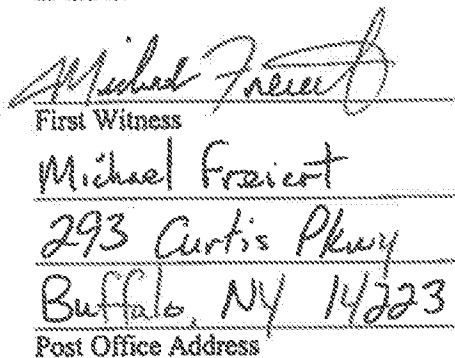 Michael Freiert
First Witness
Michael Freiert
293 Curtis Pkwy
Buffalo, NY 14223
Post Office Address